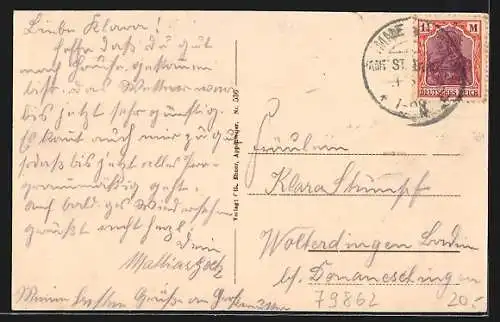 Liebe Klara!
Hoffe daß du gut
nach Hause gekommen
bist. das Wetter war
bis jetzt sehr günstig.
Es kam auch mir zu gut
sodaß bis jetzt alles
programmäßig geht.
Auf baldiges Wiedersehen
grüßt recht herzl.
Dein
Mathias
Meine besten Grüße an
Verlag: Ph. Appenweier. Nr. 539
1¼ M
DEUTSCHES REICH
ST.
Fräulein
Klara Stumpf
Wolterdingen Baden
bf. Donaueschingen
79862
20.-